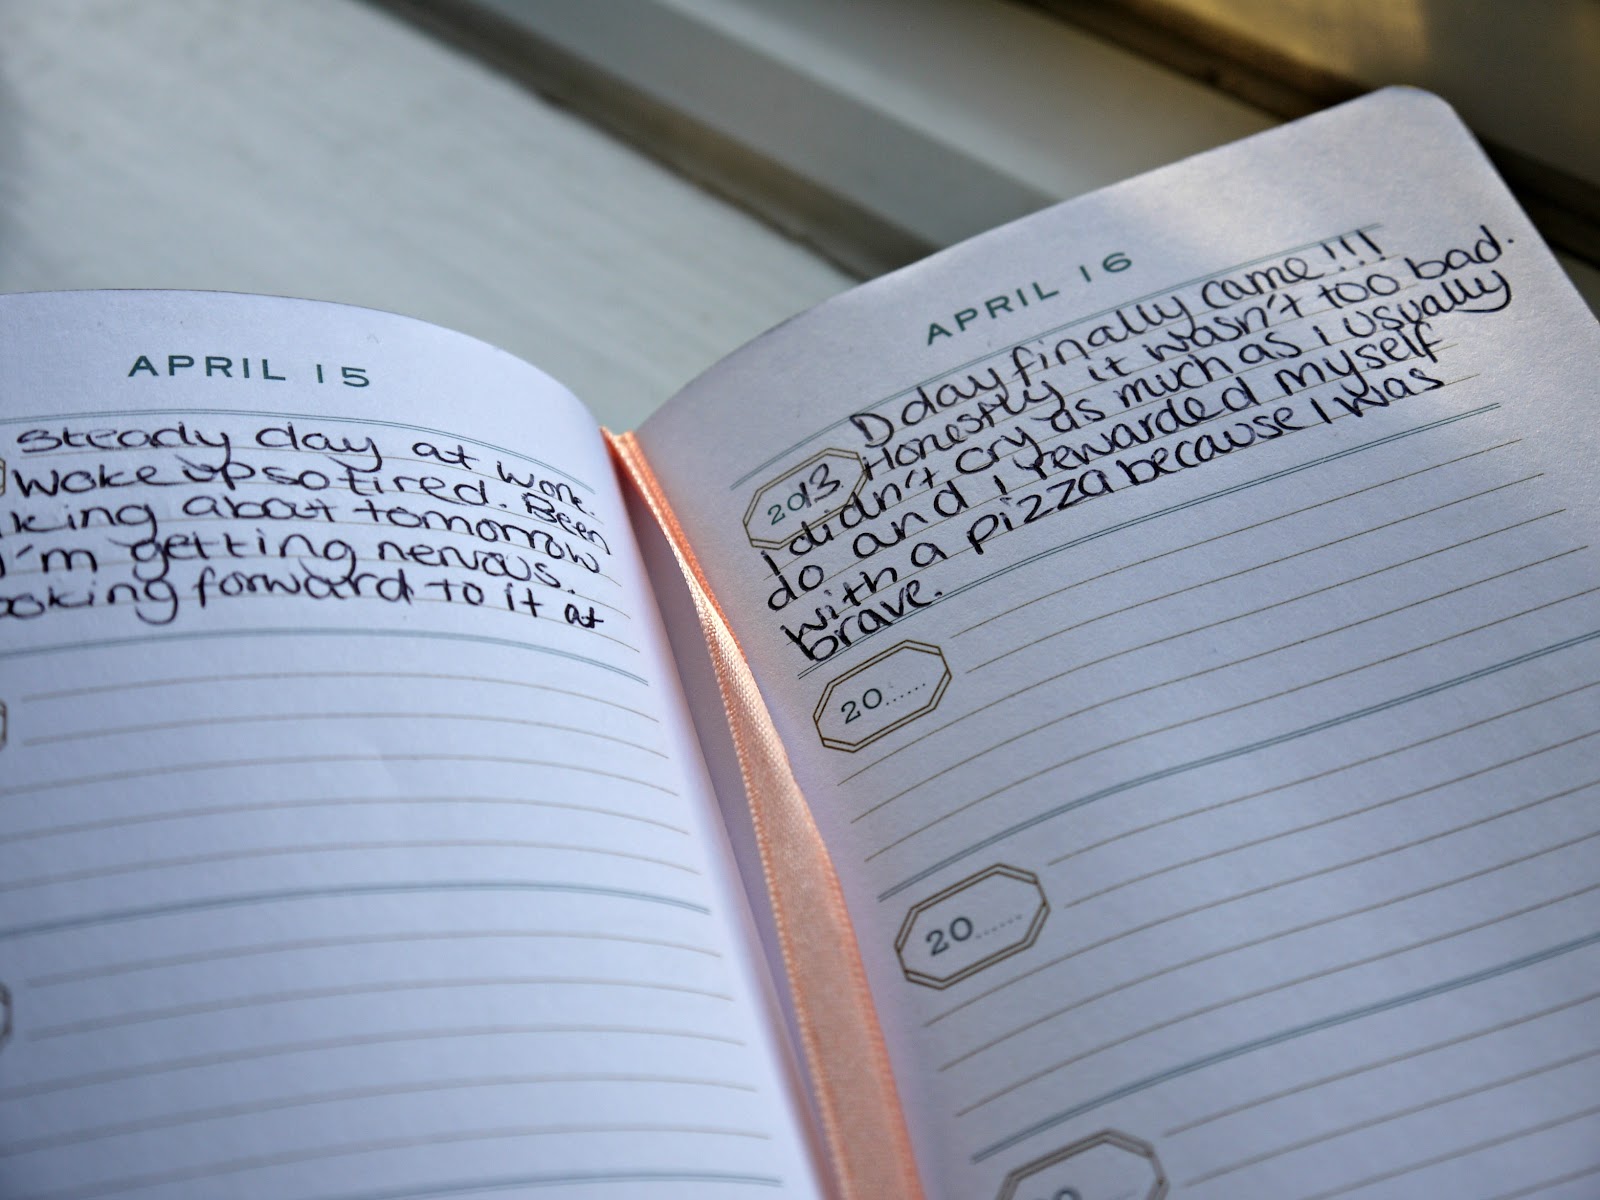 APRIL 15
Steady day at work.
Woke up so tired. Been
king about tomorrow
I'm getting nervous.
ooking forward to it at
APRIL 16
D day finally came!!!
2013 Honestly it wasn't too bad.
I didn't cry as much as I usually
do and I rewarded myself
with a pizza because I was
brave.
20......
20......
20